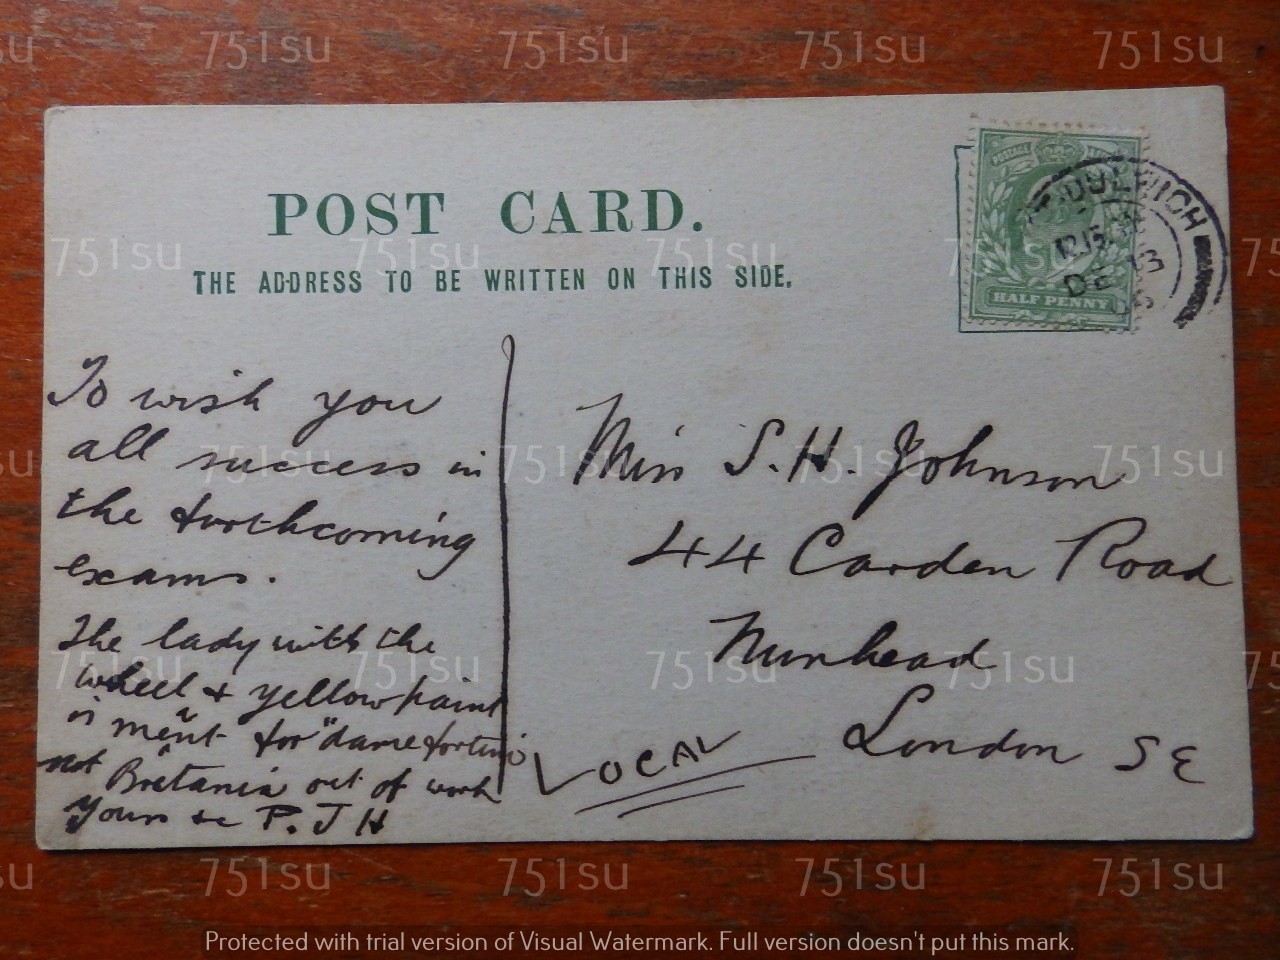 POST CARD.
THE ADDRESS TO BE WRITTEN ON THIS SIDE.
POSTAGE
HALF PENNY
DULWICH
12.15
DE 13
06
To wish you
all success in
the forthcoming
exams.
The lady with the
wheel & yellow paint
is meant for "dame fortune
not Bretania out of work
Yours &c P. J H
Miss S. H. Johnson
44 Carden Road
Nunhead
London SE
LOCAL
751su
Protected with trial version of Visual Watermark. Full version doesn't put this mark.